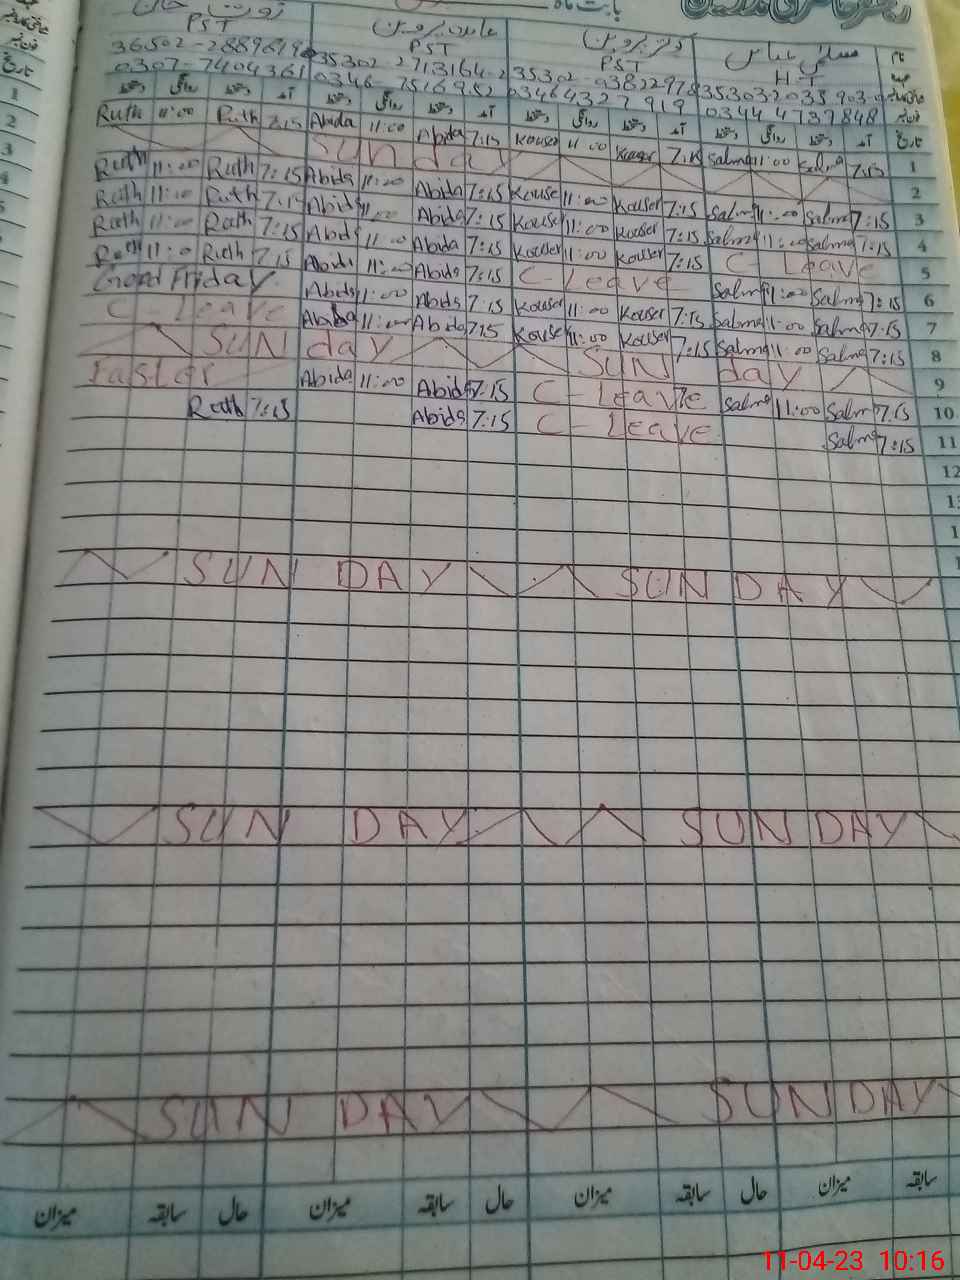 بابت ماہ
PST PST PST H.T
0307-7404361 0346-7516952 03464327919 0344 4737848
دستخط روانگی دستخط آمد دستخط روانگی دستخط آمد دستخط روانگی دستخط آمد دستخط روانگی دستخط آمد تاریخ
Ruth 11:00 Ruth 7:15 Abida 11:00 Abida 7:15 Kouser 11:00 Kouser 7:15 Salma 11:00 Salma 7:15 1
Sunday 2
Ruth 11:00 Ruth 7:15 Abida 11:00 Abida 7:15 Kouser 11:00 Kouser 7:15 Salma 11:00 Salma 7:15 3
Ruth 11:00 Ruth 7:15 Abida 11:00 Abida 7:15 Kouser 11:00 Kouser 7:15 Salma 11:00 Salma 7:15 4
Ruth 11:00 Ruth 7:15 Abida 11:00 Abida 7:15 Kouser 11:00 Kouser 7:15 C Leave 5
Ruth 11:0 Ruth 7:15 Abida 11:00 Abida 7:15 C-Leave Salma 11:00 Salma 7:15 6
Good Friday Abida 11:00 Abida 7:15 Kouser 11:00 Kouser 7:15 Salma 11:00 Salma 7:15 7
C-Leave Abida 11:00 Abida 7:15 Kouser 11:00 Kouser 7:15 Salma 11:00 Salma 7:15 8
SUN day SUN day 9
Easter Abida 11:00 Abida 7:15 C-Leave Salma 11:00 Salma 7:15 10
Ruth 7:15 Abida 7:15 C-Leave Salma 7:15 11
12
SUN DAY SUN DAY
SUN DAY SUN DAY
SUN DAY SUN DAY
میزان سابقہ حال میزان سابقہ حال میزان سابقہ حال میزان سابقہ
11-04-23 10:16